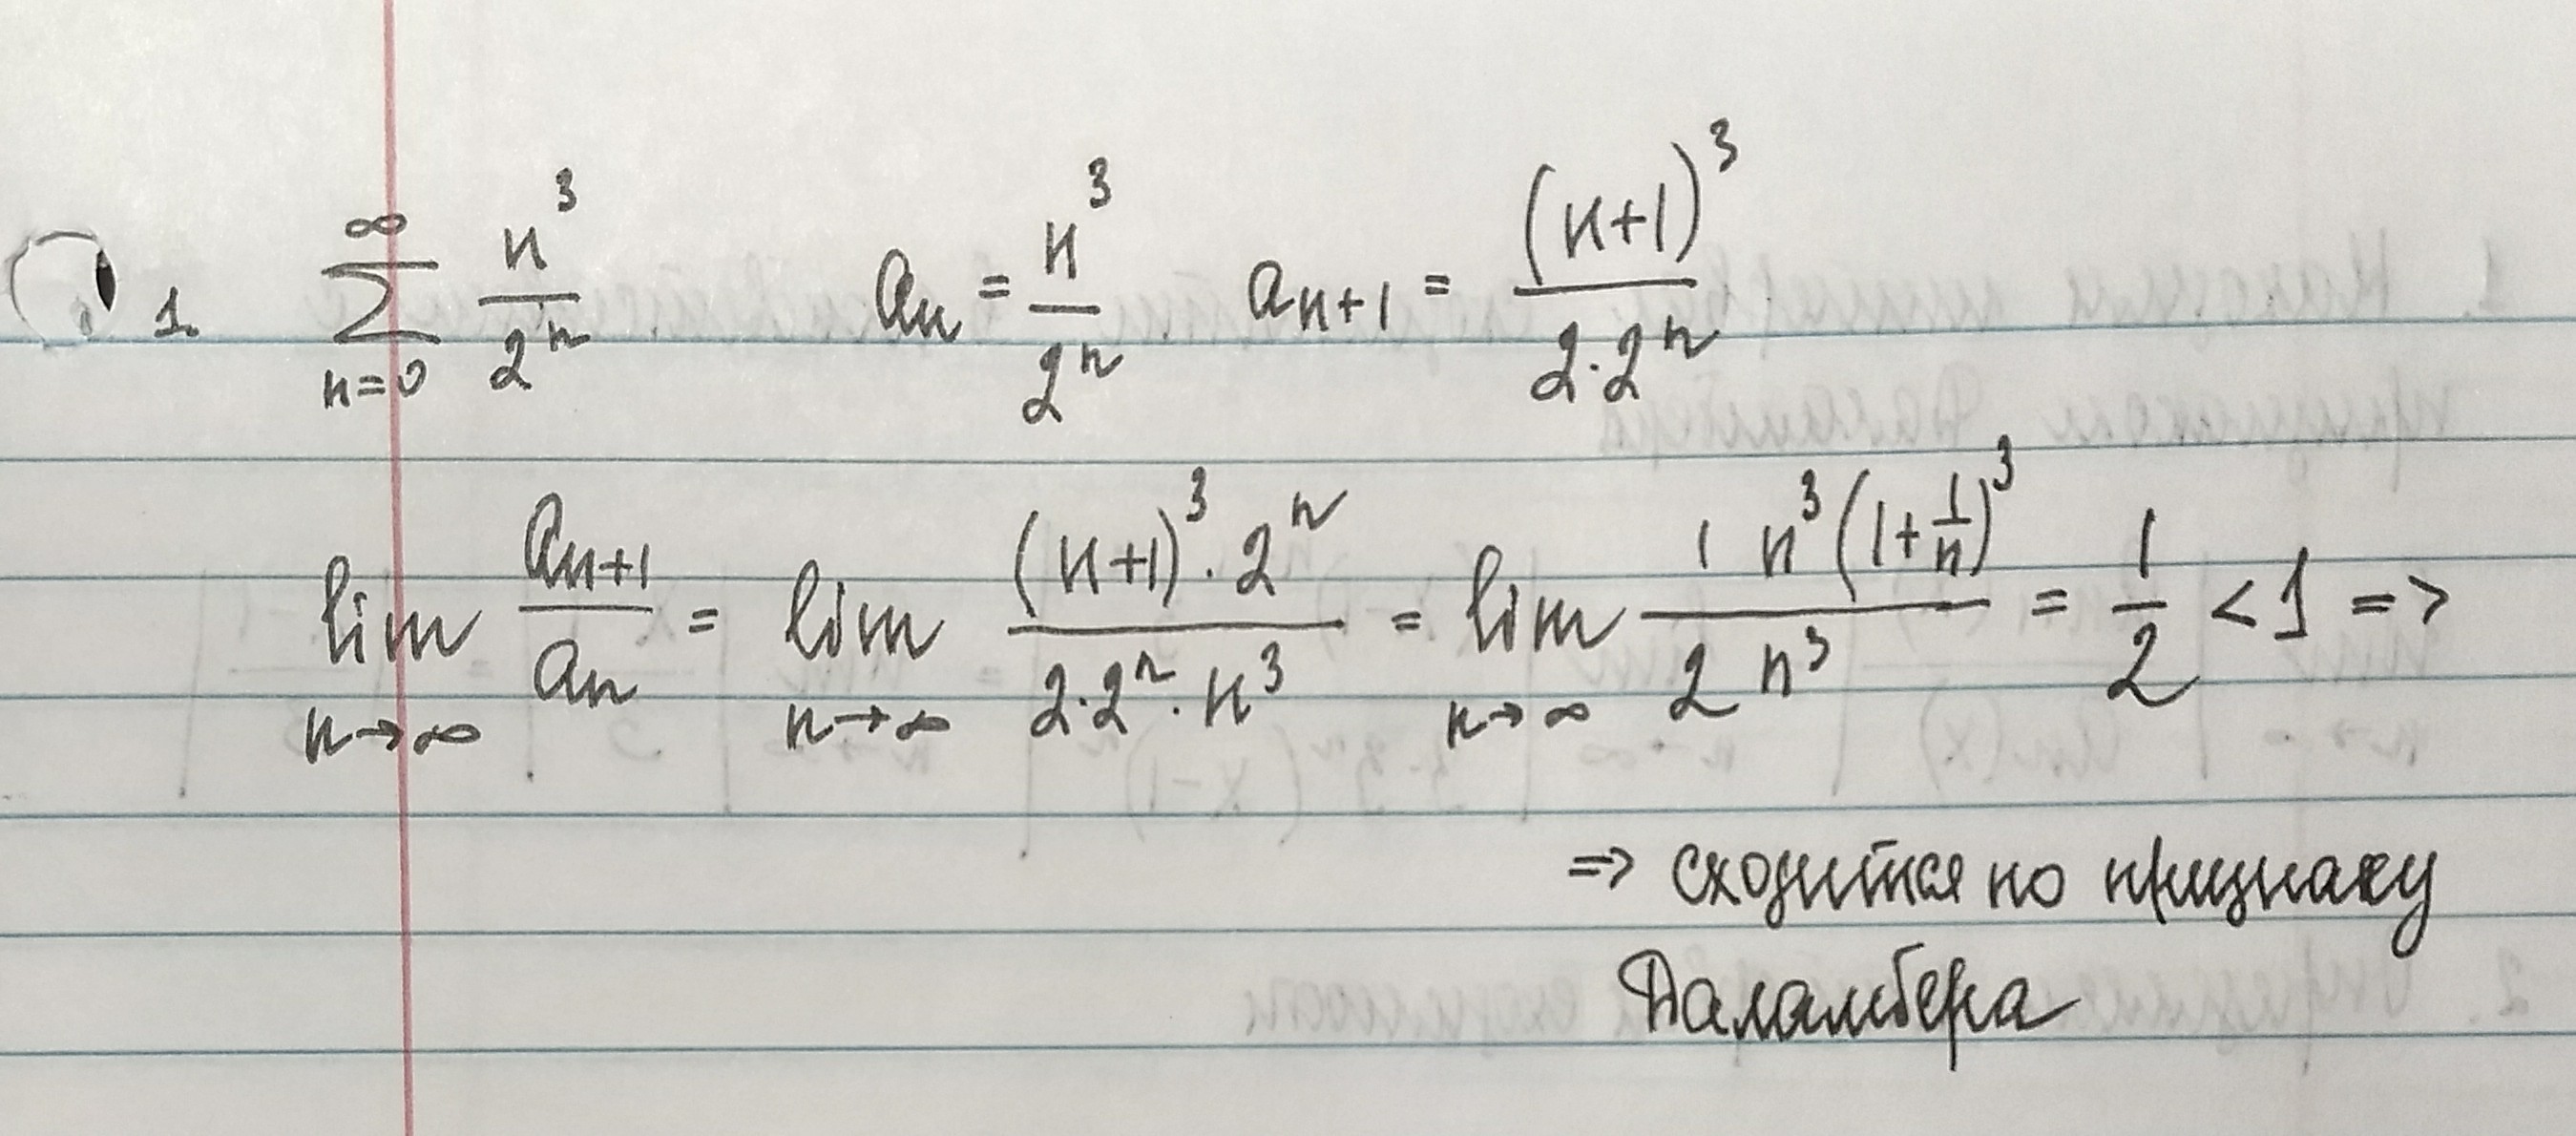 1. ∑_{n=0}^{∞} n³/2ⁿ aₙ = n³/2ⁿ aₙ₊₁ = (n+1)³/(2·2ⁿ)
lim_{n→∞} aₙ₊₁/aₙ = lim_{n→∞} ((n+1)³·2ⁿ)/(2·2ⁿ·n³) = lim_{n→∞} (1 n³(1+1/n)³)/(2 n³) = 1/2 < 1 =>
=> сходится по признаку
Даламбера